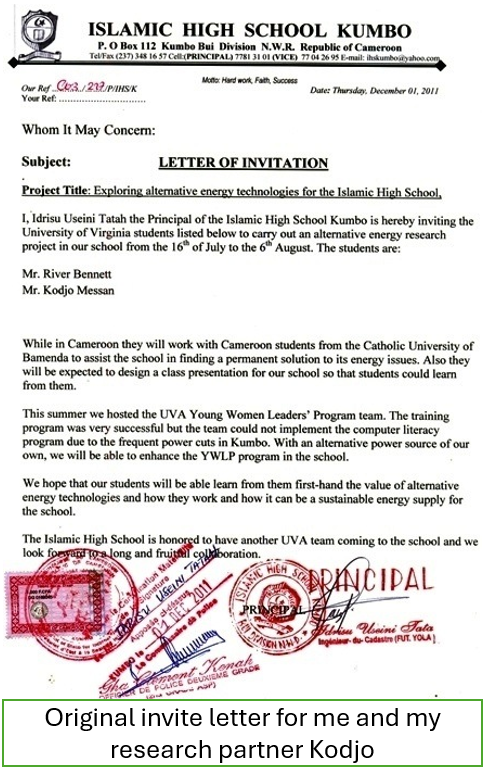 ISLAMIC HIGH SCHOOL KUMBO
P. O Box 112 Kumbo Bui Division N.W.R. Republic of Cameroon
Tel/Fax (237) 348 16 57 Cell:(PRINCIPAL) 7781 31 01 (VICE) 77 04 26 95 E-mail: ihskumbo@yahoo.com
Motto: Hard work, Faith, Success
Our Ref /P/IHS/K
Date: Thursday, December 01, 2011
Your Ref:
Whom It May Concern:
Subject: LETTER OF INVITATION
Project Title: Exploring alternative energy technologies for the Islamic High School,
I, Idrisu Useini Tatah the Principal of the Islamic High School Kumbo is hereby inviting the
University of Virginia students listed below to carry out an alternative energy research
project in our school from the 16th of July to the 6th August. The students are:
Mr. River Bennett
Mr. Kodjo Messan
While in Cameroon they will work with Cameroon students from the Catholic University of
Bamenda to assist the school in finding a permanent solution to its energy issues. Also they
will be expected to design a class presentation for our school so that students could learn
from them.
This summer we hosted the UVA Young Women Leaders' Program team. The training
program was very successful but the team could not implement the computer literacy
program due to the frequent power cuts in Kumbo. With an alternative power source of our
own, we will be able to enhance the YWLP program in the school.
We hope that our students will be able learn from them first-hand the value of alternative
energy technologies and how they work and how it can be a sustainable energy supply for
the school.
The Islamic High School is honored to have another UVA team coming to the school and we
look forward to a long and fruitful collaboration.
PRINCIPAL
PRINCIPAL
ISLAMIC HIGH SCHOOL
Idrisu Useini Tata
Ingénieur du Cadastre (FUT. YOLA)
IDRISU USEINI TATAH
DEC 2011
KUMBO
Le Commissaire de Police
OFFICIER DE POLICE DEUXIEME GRADE
Original invite letter for me and my
research partner Kodjo